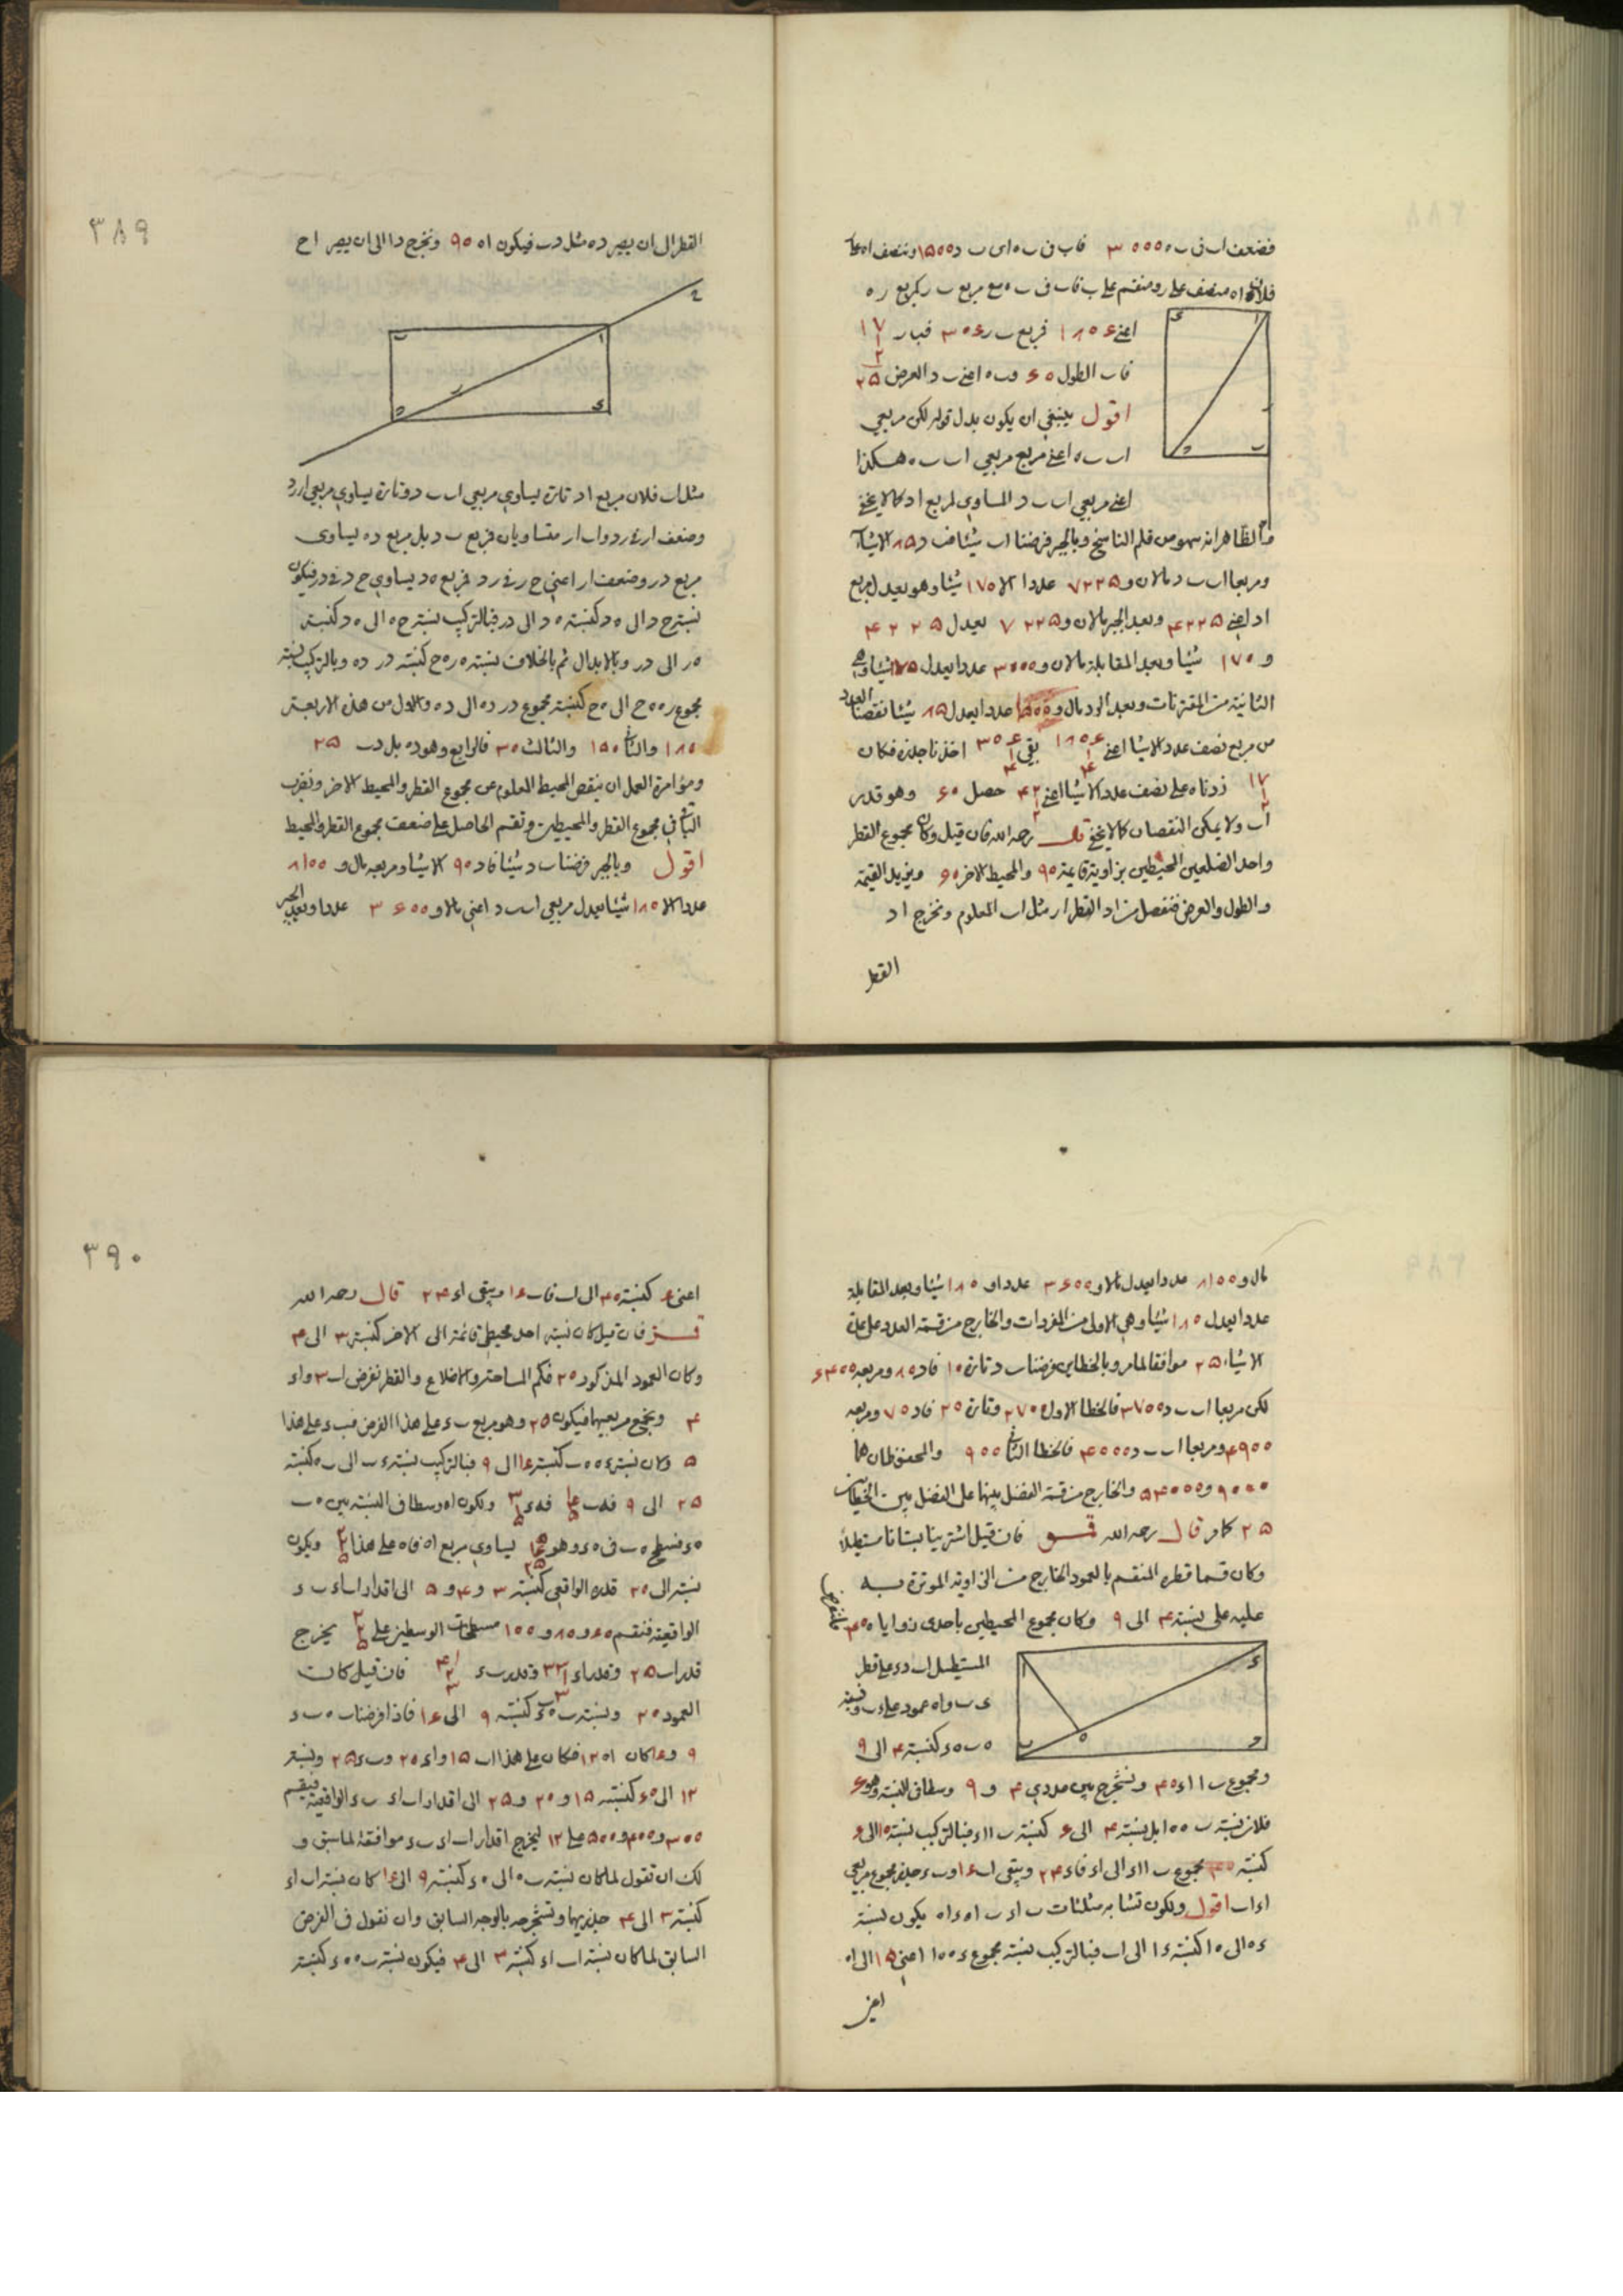 فضعف اب فى ب ه ٣٥٥٥٥ فاب فى ب ه اى ب د ١٥٥٥ وننصف اه على
فلان اه منصف على ر ومنقسم على ب فاب فى ب ه مع مربع ب ر كمربع ر ه
اعنى ١٨٥٤ فمربع ب ر ٣٥٤ فب ر ١٧
فاب الطول ٤٥ وب ه اعنى ب د العرض ٢٥
اقول ينبغي ان يكون بدل قوله لكن مربعي
اب ب ه اعنى مربع مربعي اب ب ه هكذا
اعنى مربعي اب ب د المساوي لمربع اد كما لا يخفى
والظاهر انه سهو من قلم الناسخ وبالجبر فرضنا اب شيئا فب د ٨٥ الا شيئا
ومربعا اب ب د مالان و ٧٢٢٥ عددا الا ١٧٥ شيئا وهو يعدل مربع
اد اعنى ٤٢٢٥ وبعد الجبر مالان و ٧٢٢٥ يعدل ٤٢٢٥
و ١٧٥ شيئا وبعد المقابلة مالان و ٣٥٥٥ عددا يعدل ١٧٥ شيئا وهى
الثانية من المقترنات وبعد الرد مال و ١٥٥٥ عددا يعدل ٨٥ شيئا نقصنا العدد
من مربع نصف عدد الاشيا اعنى ١٨٥٤ بقى ٣٥٤ اخذنا جذره فكان
١٧ زدناه على نصف عدد الاشيا اعنى ٤٢ حصل ٤٥ وهو قدر
اب ولا يمكن النقصان كما لا يخفى قال رحمه الله فان قيل وكان مجموع القطر
واحد الضلعين المحيطين بزاوية قايمة ٩٥ والمحيط الاخر ٤٥ ونريد القيمة
والطول والعرض فنفصل من اد القطر ار مثل اب المعلوم ونخرج اد
القطر
٣٨٩
القطر الى ان يصير ده مثل دب فيكون اه ٩٥ ونخرج دا الى ان يصير اح
مثل اب فلان مربع اد تارة يساوي مربعي اب ب د وتارة يساوي مربعي ار رد
وضعف ار فى رد واب ار متساويان فمربع ب د بل مربع ده يساوى
مربع در وضعف ار اعنى ح ر فى رد فمربع ه د يساوي ح د فى در فيكون
نسبة ح د الى ه د كنسبة ه د الى در فبالتركيب نسبة ح ه الى ه د كنسبة
ه ر الى در وبالابدال ثم بالخلاف نسبة ه ر ه ح كنسبة در ده وبالتركيب نسبة
مجموع ر ه ه ح الى ه ح كنسبة مجموع در ده الى ده والاول من هذه الاربعة
١٨٥ والثانى ١٥٥ والثالث ٣٥ فالرابع وهو ده بل دب ٢٥
ومؤامرة العمل ان ينقص المحيط المعلوم من مجموع القطر والمحيط الاخر ونضرب
الباقى فى مجموع القطر والمحيطين ونقسم الحاصل على ضعف مجموع القطر والمحيط
اقول وبالجبر فرضنا ب د شيئا فاد ٩٥ الا شيئا ومربعه مال و ٨١٥٥
عددا الا ١٨٥ شيئا يعدل مربعي اب ب د اعني مالا و ٣٤٥٥ عددا وبعد الجبر
مال و ٨١٥٥ عددا يعدل مالا و ٣٤٥٥ عددا و ١٨٥ شيئا وبعد المقابلة
عددا يعدل ١٨٥ شيئا وهي الاولى من المفردات والخارج من قسمة العدد على عدة
الاشياء ٢٥ موافقا لما مر وبالخطاين فرضنا ب د تارة ١٥ فاد ٨٥ ومربعه ٤٤٥٥
لكن مربعا اب ب د ٣٧٥٥ فالخطا الاول ٢٧٥٥ وتارة ٢٥ فاد ٧٥ ومربعه
٤٩٥٥ ومربعا اب ب د ٤٥٥٥ فالخطا الثانى ٩٥٥ والمحفوظان هما
٩٥٥٥ و ٥٤٥٥٥ والخارج من قسمة الفضل بينهما على الفضل بين الخطاين
٢٥ كما مر قال رحمه الله قسو فان قيل اشترينا بستانا مستطيلا
وكان قسما قطره المنقسم بالعمود الخارج من الزاوية الموترة به
عليه على نسبة ٤ الى ٩ وكان مجموع المحيطين باحدى زوايا ه ٤٥
المستطيل اب د ء على قطر
ء ب واه عمود على ء ب ونسبة
ه ب ه ء كنسبة ٤ الى ٩
ومجموع ب ا اء ٤٥ ونستخرج بين عددي ٤ و ٩ وسطا فى النسبة وهو ٤
فلان نسبة ب ه ه ا بل نسبة ٤ الى ٤ كنسبة ب ا اء فبالتركيب نسبة ١٥ الى ٤
كنسبة ٤٥ مجموع ب ا اء الى اء فاء ٢٤ ويبقى اب ١٤ وب ء جذر مجموع مربعي
اء اب اقول ولكون تشابه مثلثات ب اء ب اه ء اه يكون نسبة
ء ه الى ه ا كنسبة ء ا الى اب فبالتركيب نسبة مجموع ء ه ه ا اعني ١٥ الى اه
اعنى
٣٩٠
اعنى ٤ كنسبة ٤٥ الى اب فاب ١٤ ويبقى اء ٢٤ قال رحمه الله
قسز فان قيل كان نسبة احد محيطي قائمة الى الاخر كنسبة ٣ الى ٤
وكان العمود المذكور ٢٥ فكم المساحة والاضلاع والقطر نفرض اب ٣ واء
٤ ونجمع مربعيهما فيكون ٢٥ وهو مربع ب ء على هذا الفرض فب ء على هذا
٥ ولان نسبة ء ه ه ب كنسبة ١٤ الى ٩ فبالتركيب نسبة ء ب الى ب ه كنسبة
٢٥ الى ٩ فه ب فه ء ولكون اه وسطا فى النسبة بين ه ب
ه ء فسطح ه ب فى ه ء وهو يساوي مربع اه فاه على هذا ويكون
نسبته الى ٢٥ قدره الواقعي كنسبة ٣ و ٤ و ٥ الى اقدار اب اء ب ء
الواقعية فنقسم ٤٥ و ٨٥ و ١٥٥ مسطحات الوسطين على يخرج
قدر اب ٢٥ وقدر اء ٣٣ وقدر ب ء ٤١ فان قيل كانت
العمود ٢٥ ونسبة ب ه ه ء كنسبة ٩ الى ١٤ فاذا فرضنا ب ه ه ء
٩ و ١٤ كان اه ١٢ فكان على هذا اب ١٥ واء ٢٥ وب ء ٢٥ ونسبة
١٢ الى ٤٥ كنسبة ١٥ و ٢٥ و ٢٥ الى اقدار اب اء ب ء الواقعية فنقسم
٣٥٥ و ٤٥٥ و ٥٥٥ على ١٢ ليخرج اقدار اب اء ب ء موافقة لما سبق و
لك ان تقول لما كان نسبة ب ه الى ه ء كنسبة ٩ الى ١٤ كان نسبة اب اء
كنسبة ٣ الى ٤ جذريهما ونستخرجه بالوجه السابق وان نقول فى الفرض
السابق لما كان نسبة اب اء كنسبة ٣ الى ٤ فيكون نسبة ب ه ه ء كنسبة